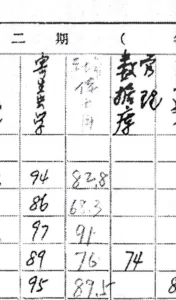 二 期 (
寄生虫学 数据库管理
94 82.8
86 68.3
97 91
89 76 74
95 89.5 8